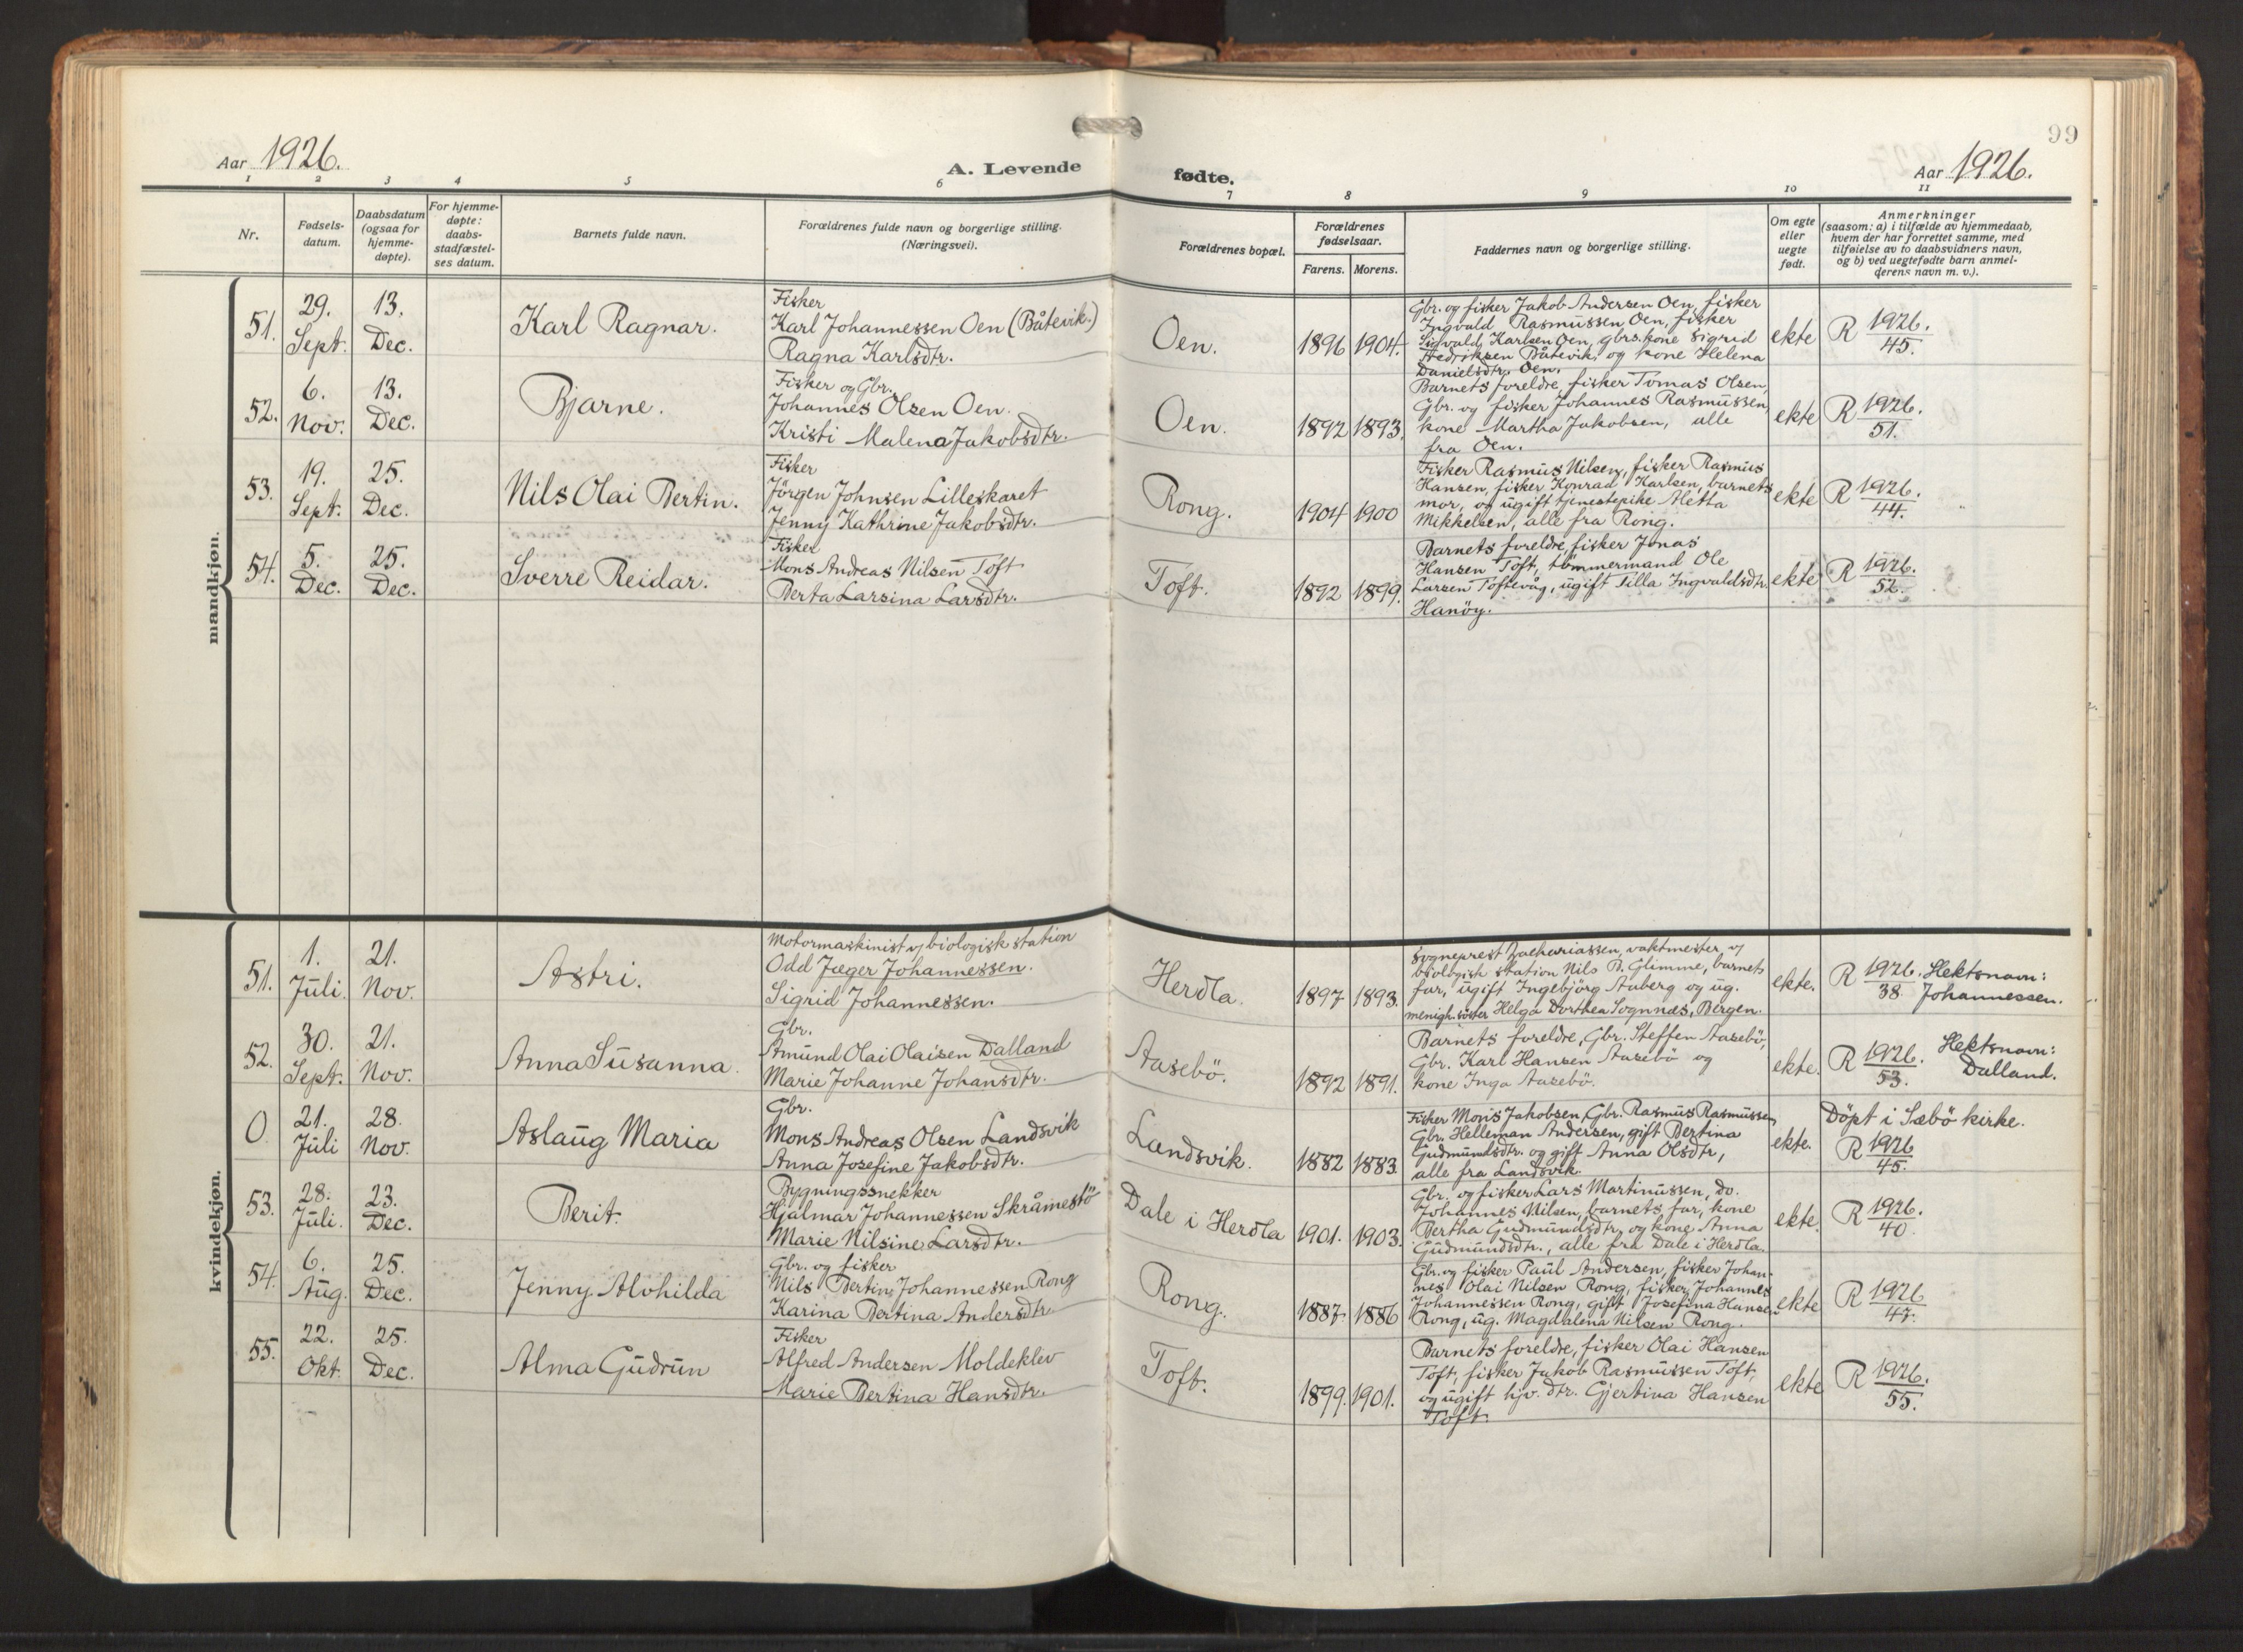 99
Aar 1926.
A. Levende fødte.
Aar 1926.
1 2 3 4 5 6 7 8 9 10 11
Nr.
Fødsels-
datum.
Daabsdatum
(ogsaa for
hjemme-
døpte).
For hjemme-
døpte:
daabs-
stadfæstel-
ses datum.
Barnets fulde navn.
Forældrenes fulde navn og borgerlige stilling.
(Næringsvei).
Forældrenes bopæl.
Forældrenes
fødselsaar.
Farens. Morens.
Faddernes navn og borgerlige stilling.
Om egte
eller
uegte
født.
Anmerkninger
(saasom: a) i tilfælde av hjemmedaab,
hvem der har forrettet samme, med
tilføielse av to daabsvidners navn,
og b) ved uegtefødte barn anmel-
derens navn m. v.).
mandkjøn.
51.
29.
Sept.
13.
Dec.
Karl Ragnar.
Fisker
Karl Johannessen Oen (Båtevik.)
Ragna Karlsdtr.
Oen.
1896 1904.
Gbr. og fisker Jakob Andersen Oen, fisker
Ingvald Rasmussen Oen, fisker
Sigvald Karlsen Oen, gbrs. kone Sigrid
Hedriksen Båtevik, og kone Helena
Danielsdtr. Oen.
ekte
R 1926.
45.
52.
6.
Nov.
13.
Dec.
Bjarne.
Fisker og Gbr.
Johannes Olsen Oen.
Kristi Malena Jakobsdtr.
Oen.
1892 1893.
Barnets foreldre, fisker Tomas Olsen,
Gbr. og fisker Johannes Rasmussen,
kone Martha Jakobsen, alle
fra Oen.
ekte
R 1926.
51.
53.
19.
Sept.
25.
Dec.
Nils Olai Bertin.
Fisker
Jörgen Johnsen Lilleskaret
Jenny Kathrine Jakobsdtr.
Rong.
1904 1900
Fisker Rasmus Nilsen, fisker Rasmus
Hansen, fisker Konrad Karlsen, barnets
mor, og ugift tjenestepike Aletta
Mikkelsen, alle fra Rong.
ekte
R 1926.
44.
54.
5.
Dec.
25.
Dec.
Sverre Reidar.
Fisker
Mons Andreas Nilsen Toft
Berta Larsina Larsdtr.
Toft.
1892 1899.
Barnets foreldre, fisker Jonas
Hansen Toft, tömmermand Ole
Larsen Toftevåg, ugift Tilla Ingvaldsdtr.
Hanöy.
ekte
R 1926.
52.
kvindekjøn.
51.
1.
Juli.
21.
Nov.
Astri.
Motormaskinist v/ biologisk station
Odd Jæger Johannessen.
Sigrid Johannessen.
Herdla.
1897 1893.
Sogneprest Zachariassen, vaktmester v/
biologisk station Nils B. Glimme, barnets
far, ugift Ingebjörg Auberg og ug.
menigh.söster Helga Dorthea Sognnæs, Bergen.
ekte.
R 1926.
38
Slektsnavn:
Johannessen.
52.
30.
Sept.
21.
Nov.
Anna Susanna.
Gbr.
Amund Olai Olaisen Dalland
Marie Johanne Johansdtr.
Aasebö.
1892 1891.
Barnets foreldre, Gbr. Steffen Aasebö,
Gbr. Karl Hansen Aasebö og
kone Inga Aasebö.
ekte.
R 1926.
53.
Slektsnavn:
Dalland.
0
21.
Juli
28.
Nov.
Aslaug Maria
Gbr.
Mons Andreas Olsen Landsvik
Anna Josefine Jakobsdtr.
Landsvik.
1882 1883.
Fisker Mons Jakobsen, Gbr. Rasmus Rasmussen,
Gbr. Helleman Andersen, gift Bertina
Gudmundsdtr. og gift Anna Olsdtr,
alle fra Landsvik.
ekte.
Döpt i Sæbö kirke.
R 1926
45.
53.
28.
Juli.
23.
Dec.
Berit.
Bygningssnekker
Hjalmar Johannessen Skråmestö
Marie Nilsine Larsdtr.
Dale i Herdla
1901. 1903.
Gbr. og fisker Lars Martinussen, do.
Johannes Nilsen, barnets far, kone
Bertha Gudmundsdtr, og kone Anna
Gudmundsdtr., alle fra Dale i Herdla.
ekte.
R 1926.
40.
54.
6.
Aug.
25.
Dec.
Jenny Alvhilda
Gbr. og fisker
Nils Bertin Johannessen Rong
Karina Bertina Andersdtr.
Rong.
1887 1886
Gbr. og fisker Paul Andersen, fisker Johan-
nes Olai Nilsen Rong, fisker Johannes
Johannessen Rong, gift Josefina Hansen
Rong, ug. Magdalena Nilsen Rong.
ekte
R 1926
47.
55.
22.
Okt.
25.
Dec.
Alma Gudrun
Fisker
Alfred Andersen Moldeklev
Marie Bertina Hansdtr.
Toft.
1899. 1901.
Barnets foreldre, fisker Olai Hansen
Toft, fisker Jakob Rasmussen Toft,
og ugift hjv. dtr. Gjertina Hansen
Toft.
ekte
R 1926.
55.